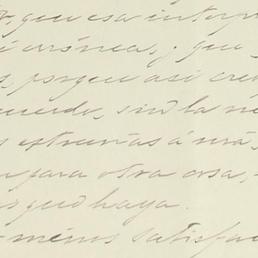 que esa interp
errónea, y que
porque así cre
cuerde, sin la ne
extrañas á mí
para otra cosa,
que haya.
ménos satisfac